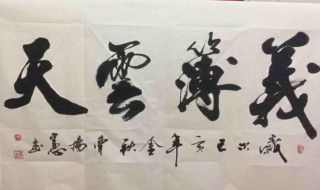 義簿雲天
歲次己亥年金秋書